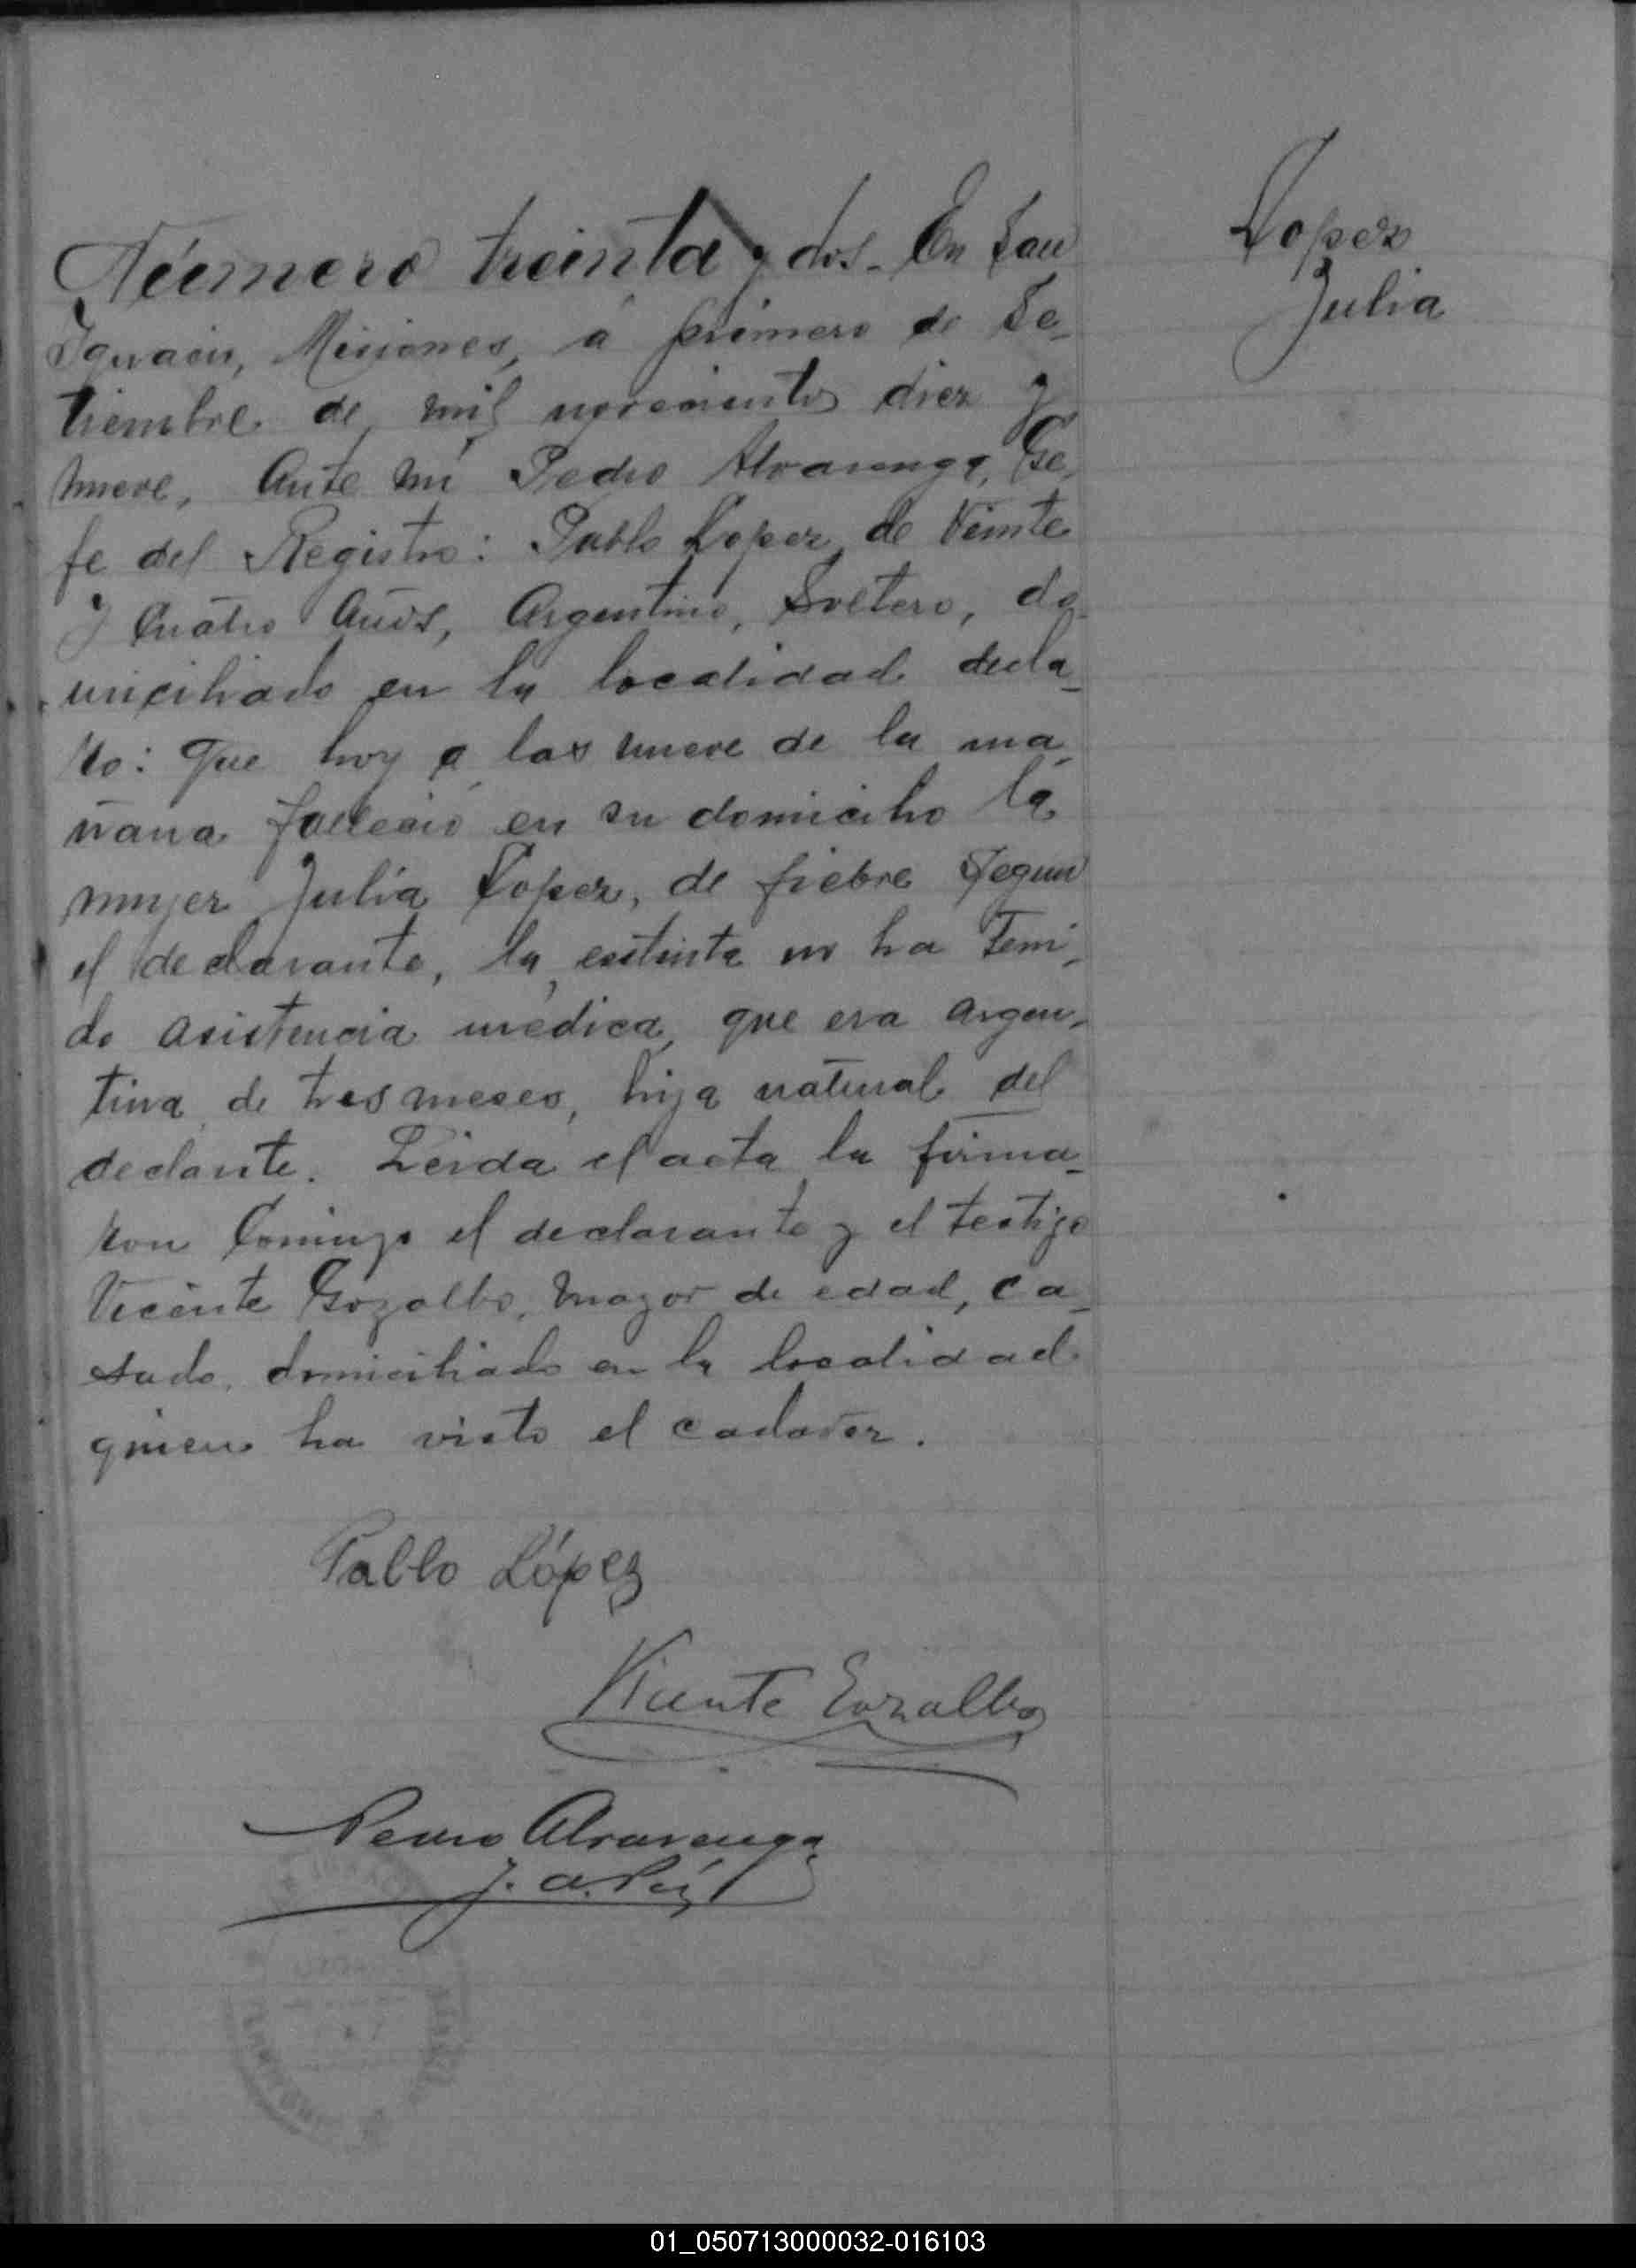 Número treinta y dos. En San
Ignacio, Misiones, á primero de Se-
tiembre de mil novecientos diez y
nueve, Ante mi Pedro Alvarenga, Ge-
fe del Registro: Pablo Lopez, de Veinte
y Cuatro Años, Argentino, Soltero, do-
miciliado en la localidad decla-
ro: Que hoy a las nueve de la ma-
ñana falleció en su domicilio la
mujer Julia Lopez, de fiebre segun
el declarante, la extinta no ha teni-
do asistencia médica, que era argen-
tina, de tres meses, hija natural del
declante. Leida el acta la firma-
ron Conmigo el declarante y el testigo
Vicente Gozalbo, mayor de edad, ca-
sado, domiciliado en la localidad
quien ha visto el cadaver.
Pablo López
Vicente Gozalbo
Pedro Alvarenga
J. de Paz
Lopez
Julia
01_050713000032-016103